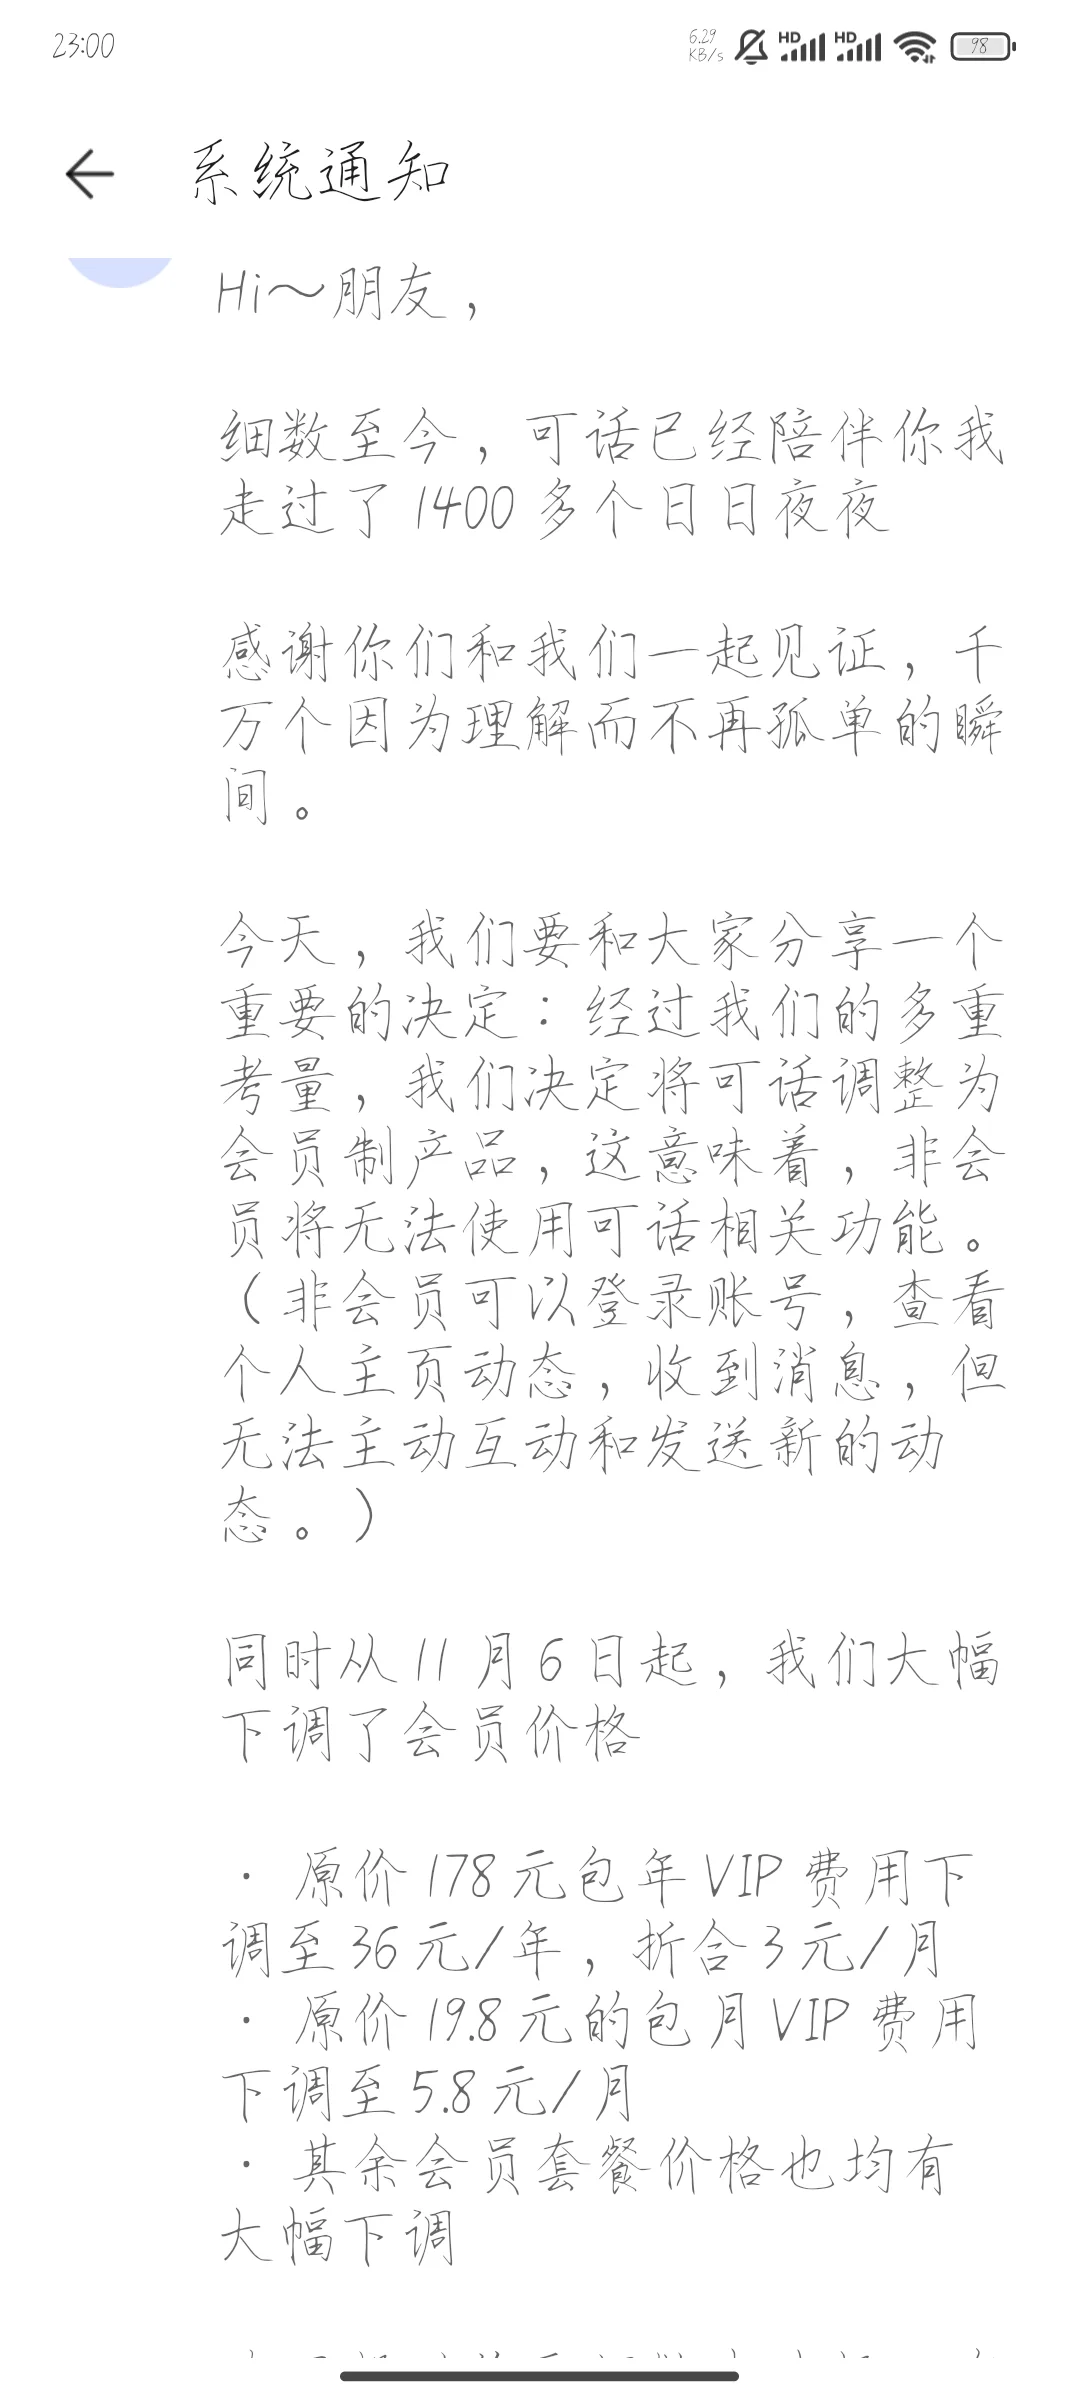 23:00
6.29
KB/s
HD
HD
98
系统通知
Hi～朋友，
细数至今，可话已经陪伴你我
走过了 1400 多个日日夜夜
感谢你们和我们一起见证，千
万个因为理解而不再孤单的瞬
间。
今天，我们要和大家分享一个
重要的决定：经过我们的多重
考量，我们决定将可话调整为
会员制产品，这意味着，非会
员将无法使用可话相关功能。
（非会员可以登录账号，查看
个人主页动态，收到消息，但
无法主动互动和发送新的动
态。）
同时从 11 月 6 日起，我们大幅
下调了会员价格
· 原价 178 元包年 VIP 费用下
调至 36 元/年，折合 3 元/月
· 原价 19.8 元的包月 VIP 费用
下调至 5.8 元/月
· 其余会员套餐价格也均有
大幅下调